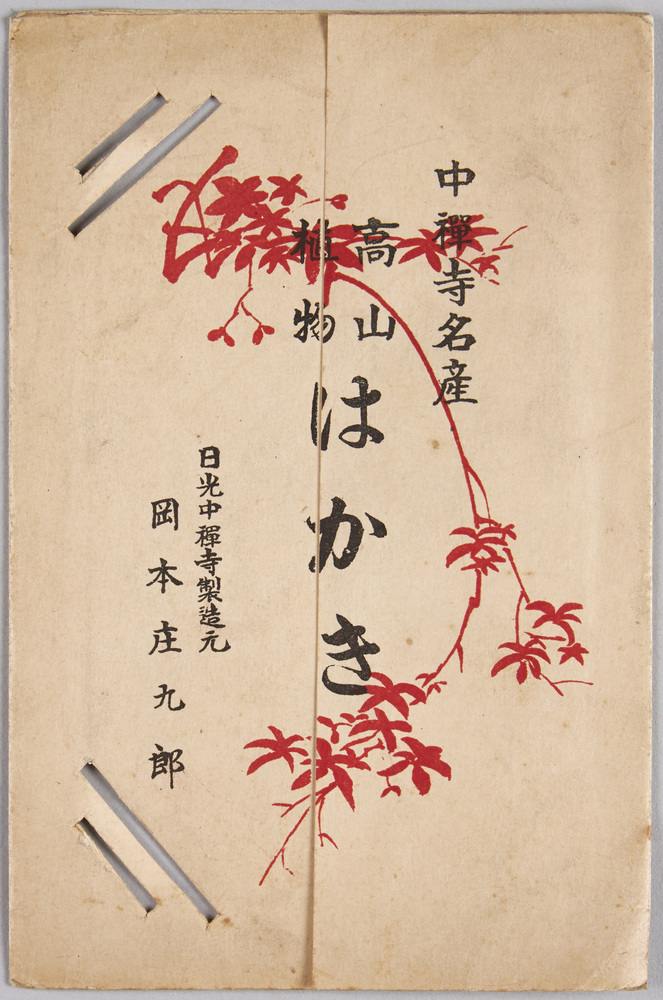 中禪寺名産
高山
植物
はかき
日光中禪寺製造元
岡本庄九郎